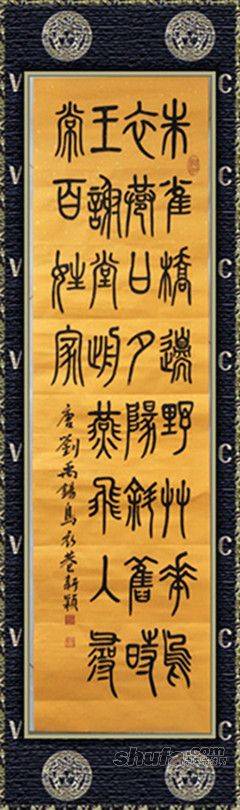 朱雀橋邊野艸華烏
衣巷口夕陽斜舊時
王謝堂前燕飛入尋
常百姓家
唐劉禹錫烏衣巷新穎
V C
V C
V C
V C
V C
V C
V C
V C